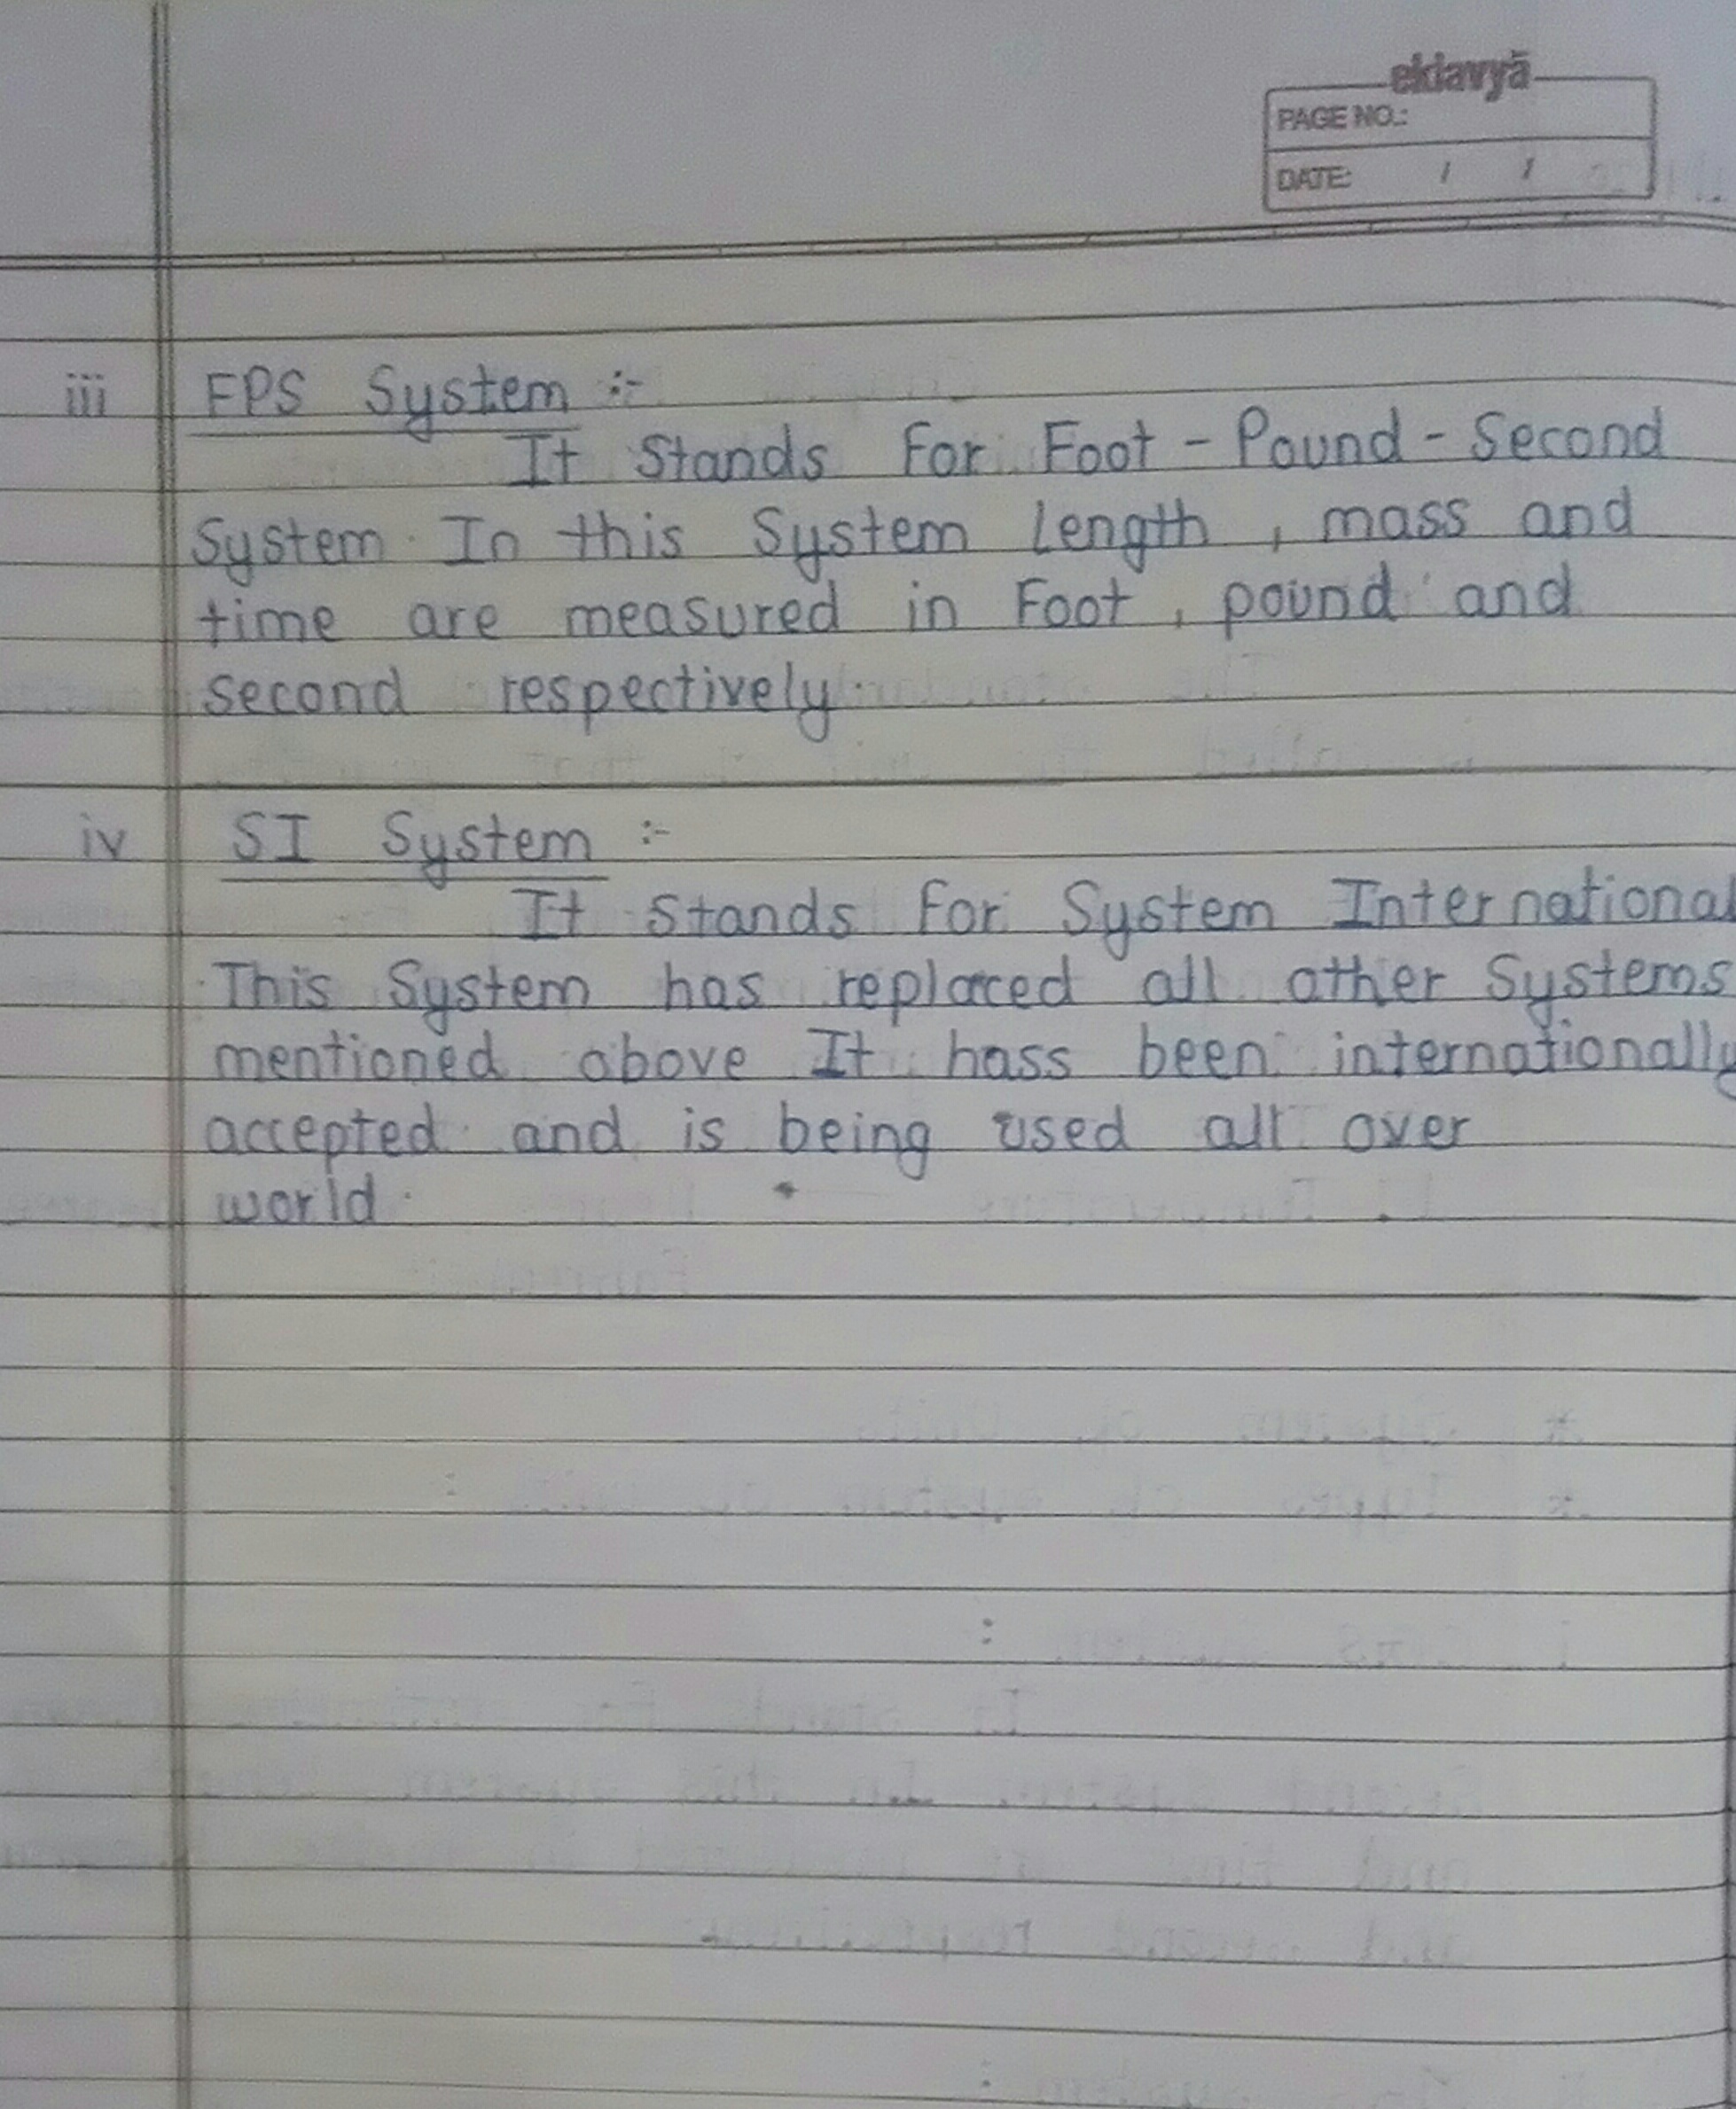 eklavya
PAGE NO.:
DATE: / /
iii FPS System :-
It Stands For Foot - Pound - Second
System. In this System Length, mass and
time are measured in Foot, pound and
second respectively.
iv SI System :-
It Stands For System International
This System has replaced all other Systems
mentioned above It hass been internationally
accepted and is being used all over
world.